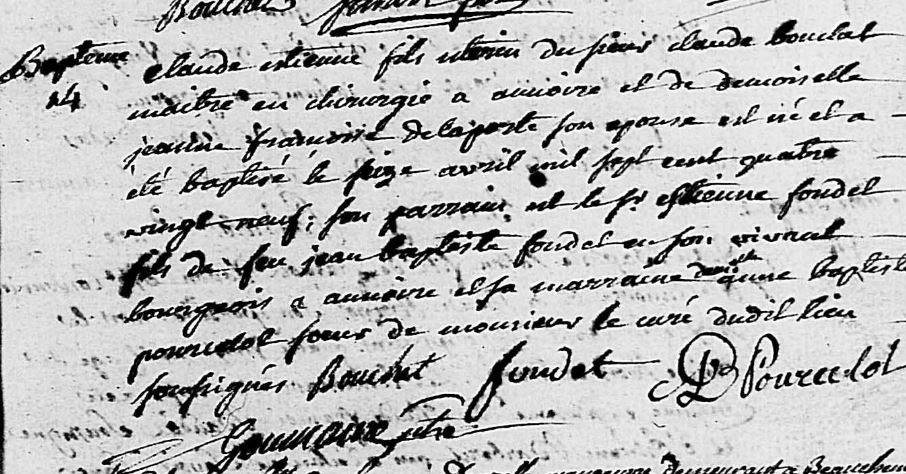 Bouchot
Bapteme
24
claude etienne fils du sieur claude bouchot
maitre en chirurgie a annoire et de demoiselle
jeanne francoise delaporte son epouse est né et a
été baptisé le seize avril mil sept cent quatre
vingt neuf, son parrain est le sr estienne fondet
fils de feu jean baptiste fondet en son vivant
bourgeois a annoire et sa marraine demlle anne baptiste
pourcelot soeur de monsieur le curé dudit lieu
soussignés Bouchot fondet Pourcelot
ptre
demeurant a